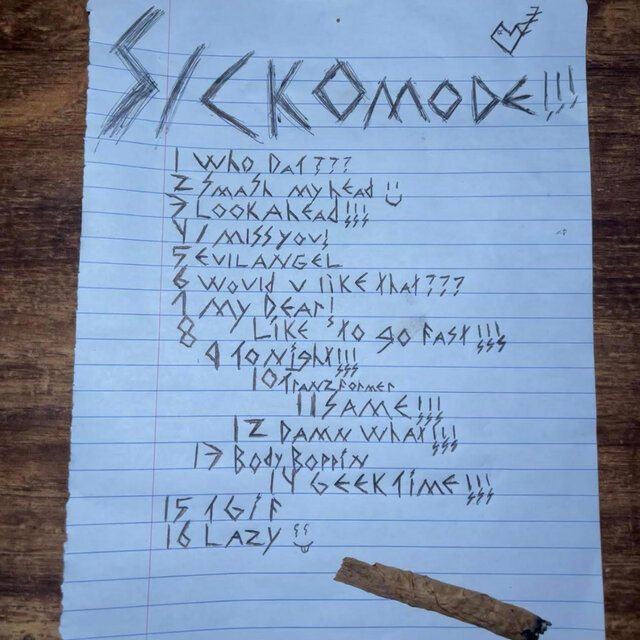 SICKOMODE!!!
1 WHO DAT???
2 SMASH MY head
3 LOOKAhEAD!!!
4 I MISS YOU!
5 EVILANGEL
6 Would u liKE that???
7 MY DEAr!
8 I LIKE 'to go FAST!!!
9 TONight!!!
10 TranzFormer
11 SAME!!!
12 DAMN What!!!
13 BODY BOPPIN
14 GEEKTIME!!!
15 TGIF
16 LAZY